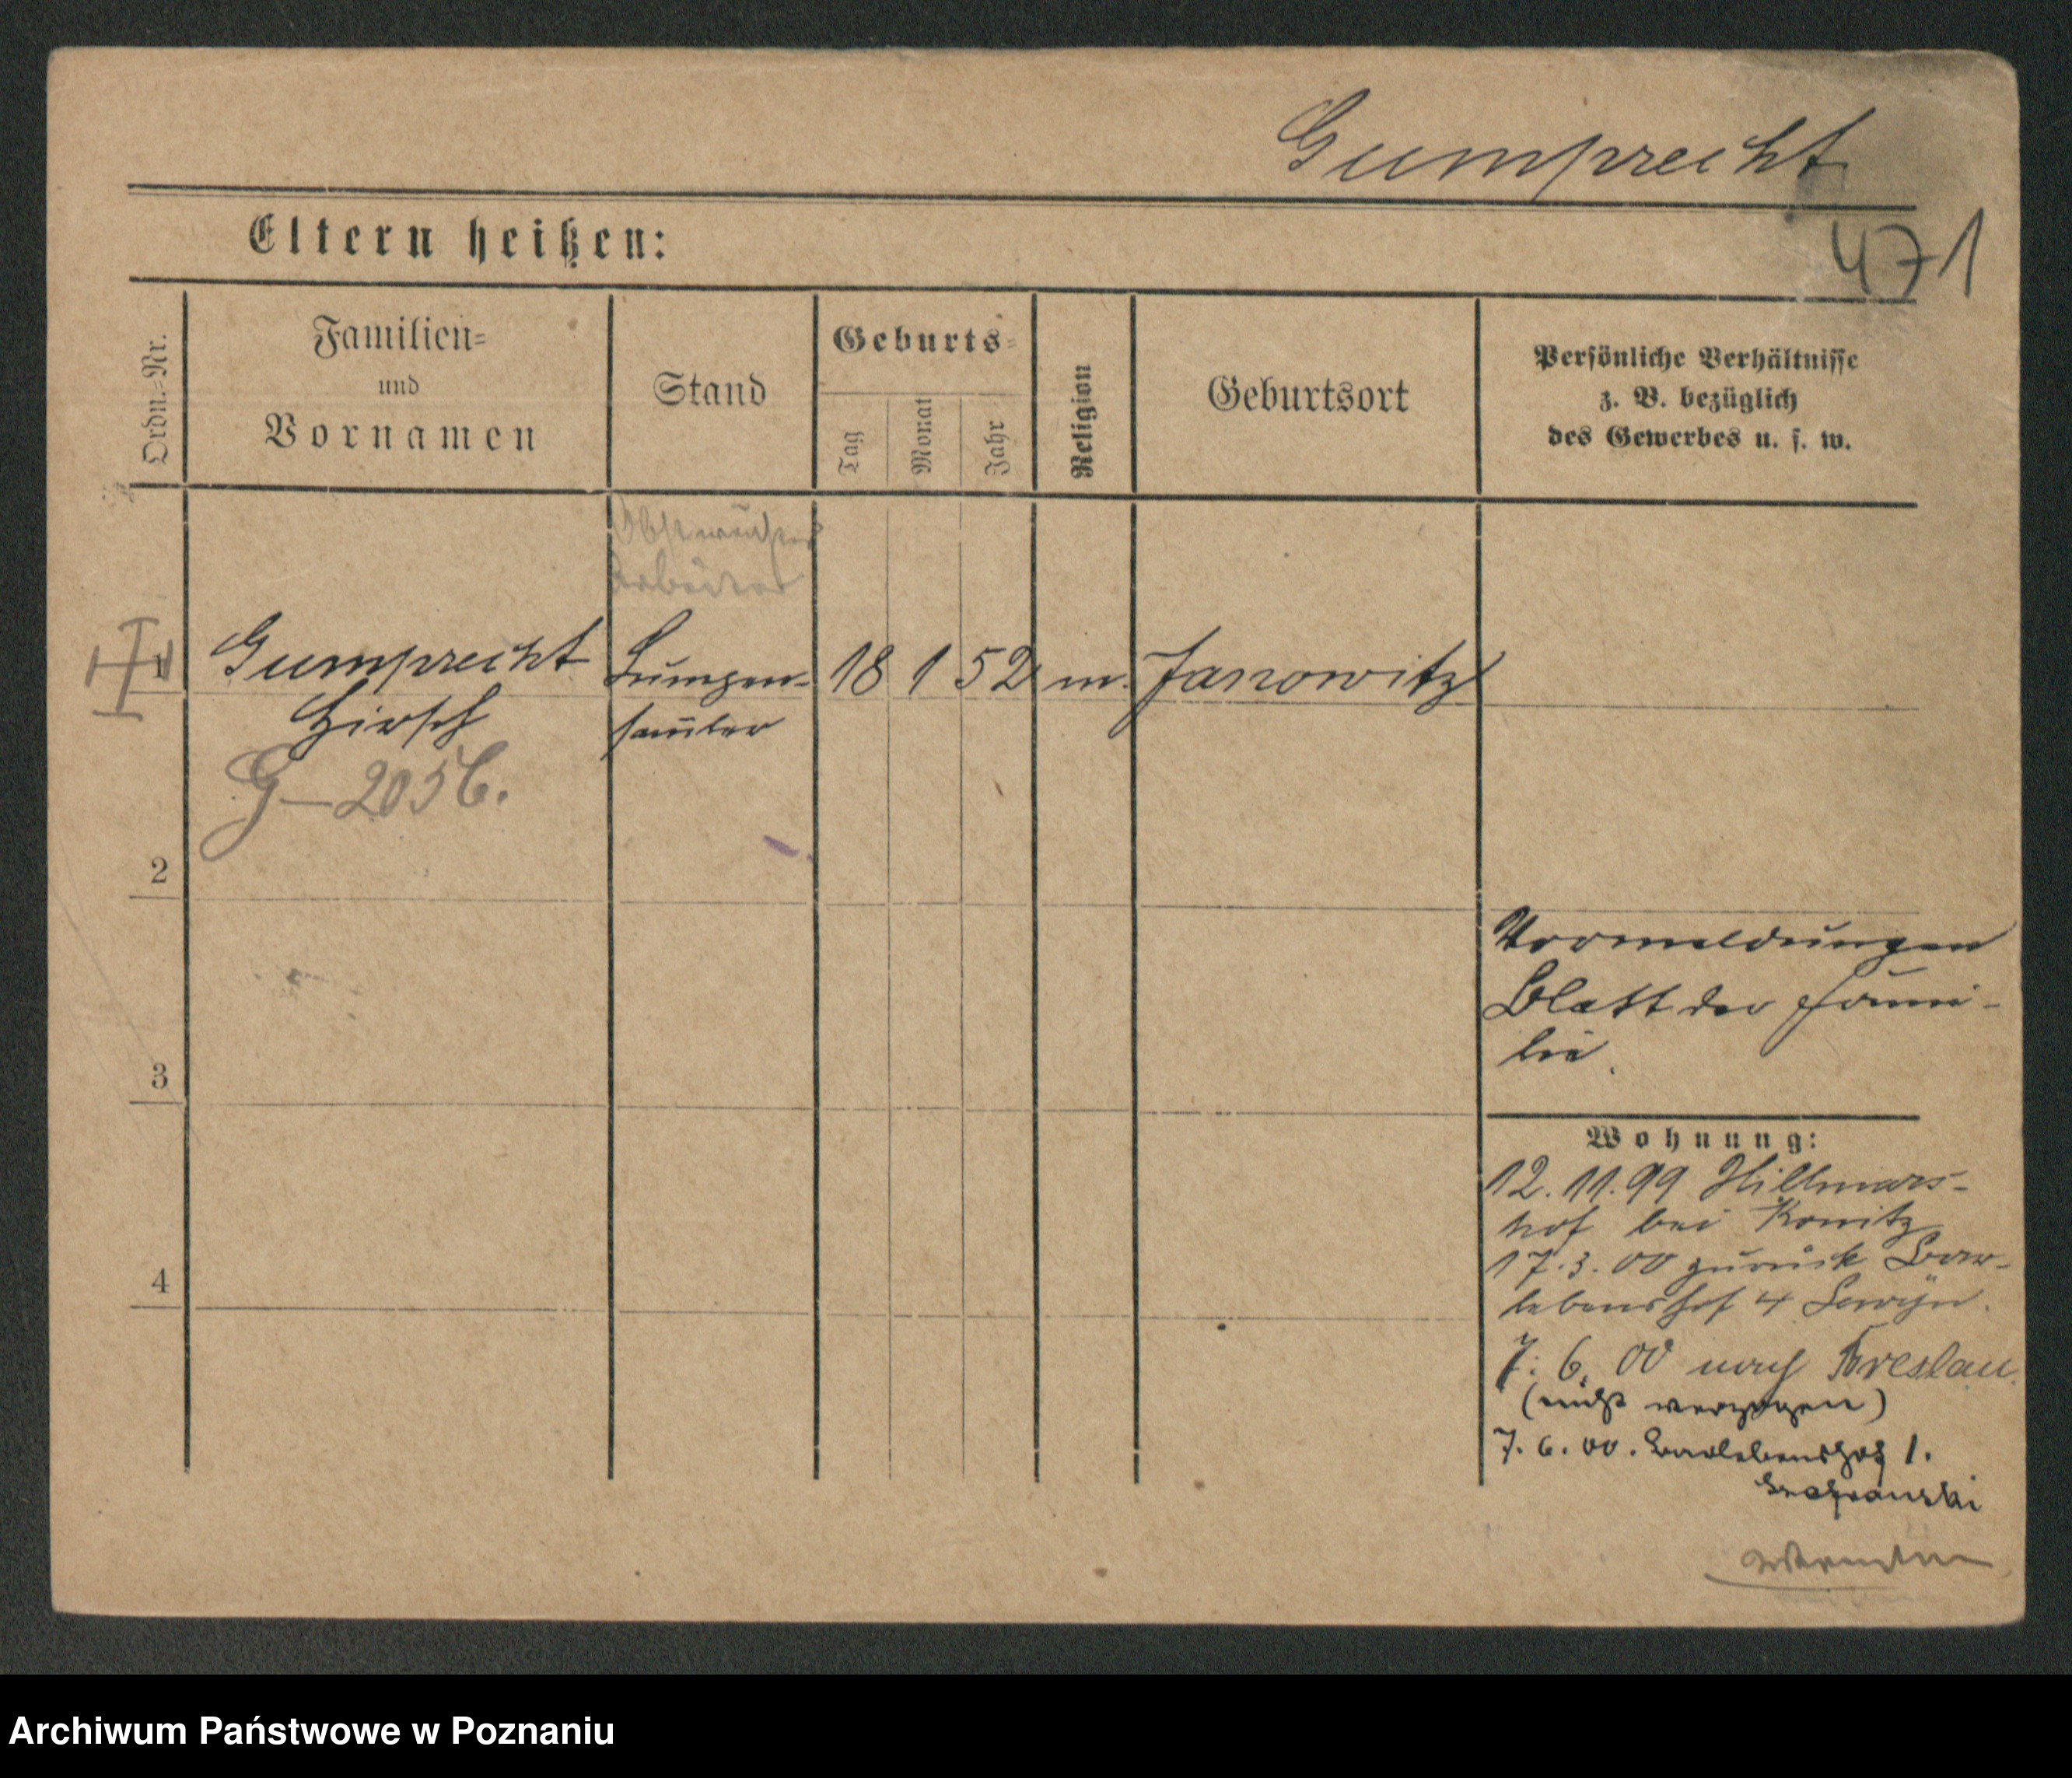 Gumprecht
471
Eltern heißen:
Ordn.-Nr.
Familien-
und
Vornamen
Stand
Geburts-
Tag
Monat
Jahr
Religion
Geburtsort
Persönliche Verhältnisse
z. B. bezüglich
des Gewerbes u. s. w.
Arbeiter
1
Gumprecht
Hirsch
G-2056.
Lumpen-
sam̄ler
18 1 52
m.
Janowitz
2
3
4
Vormeldungen
Blatt der Fami-
lie.
Wohnung:
12.11.99 Hillmars-
hof bei Konitz
17.3.00 zurück Bar-
lebenshof 4
7. 6. 00 nach Breslau.
(nicht verzogen)
7. 6. 00. Barlebenshof 1.
Archiwum Państwowe w Poznaniu